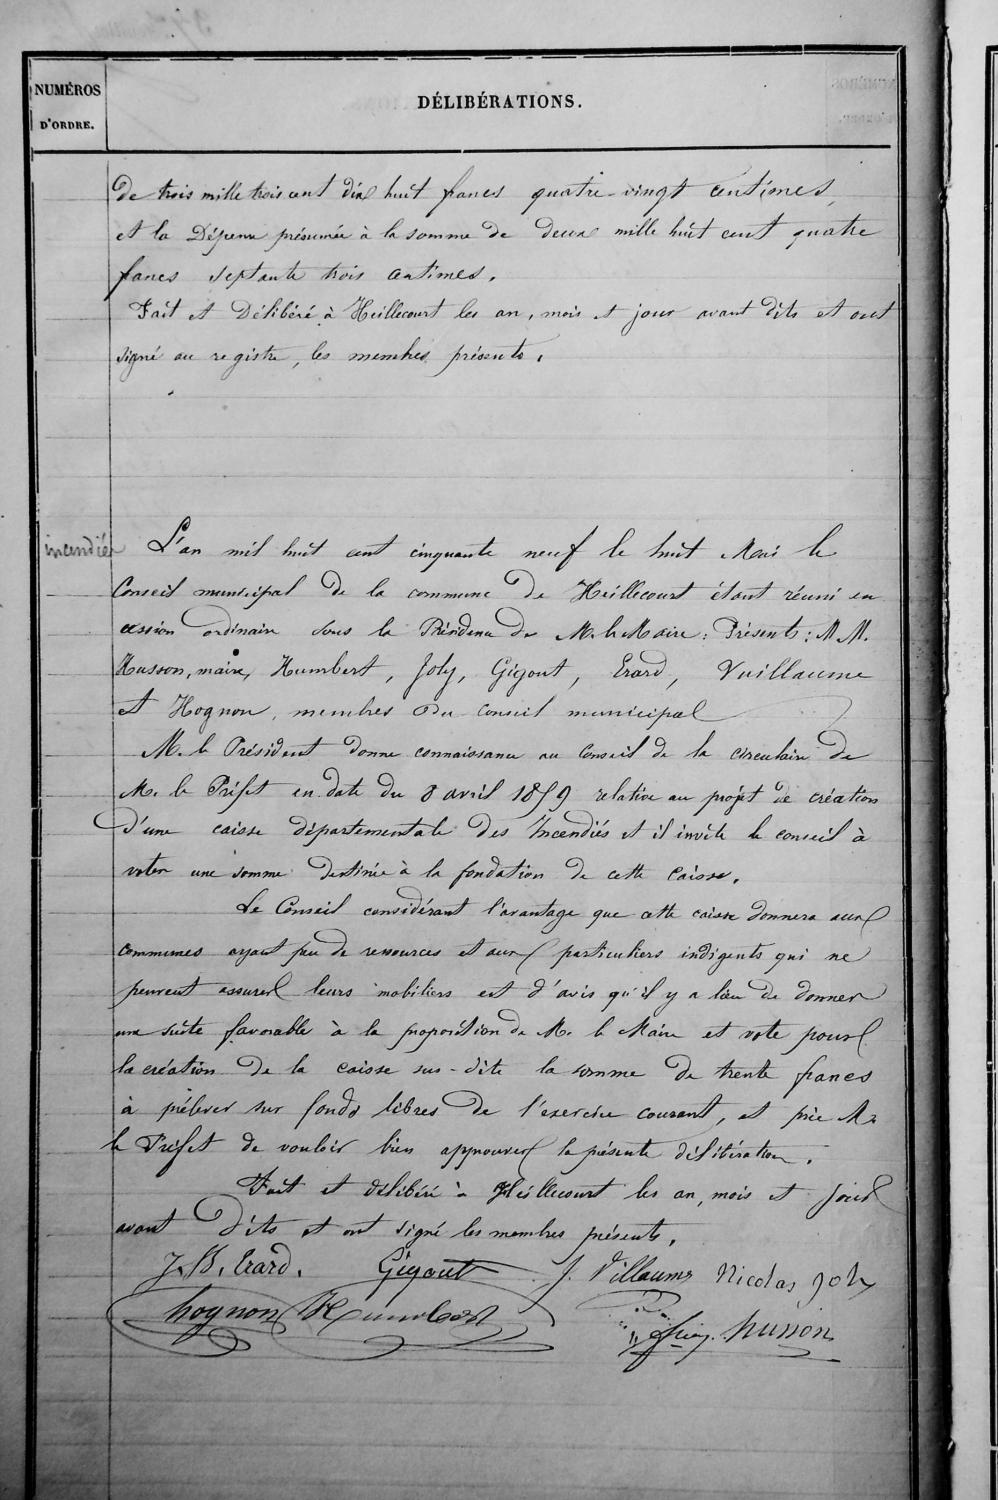 NUMÉROS
D'ORDRE.
DÉLIBÉRATIONS.
de trois mille trois cent dix huit francs quatre-vingt centimes,
et la Dépense présumée à la somme de deux mille huit cent quatre
francs septante trois centimes.
Fait et Délibéré à Heillecourt les an, mois et jour avant dits et ont
signé au registre, les membres présents.
incendiés
L'an mil huit cent cinquante neuf le huit Mai le
Conseil municipal de la commune de Heillecourt étant réuni en
cession ordinaire sous la Présidence de M. le Maire: Présents: M M.
Husson, maire, Humbert, Joly, Gigout, Erard, Vuillaume
et Hognon, membres du conseil municipal
M. le Président donne connaissance au Conseil de la circulaire de
M. le Préfet en date du 8 avril 1859 relative au projet de création
d'une caisse départementale des Incendiés et il invite le conseil à
voter une somme destinée à la fondation de cette caisse.
Le Conseil considérant l'avantage que cette caisse donnera aux
communes ayant peu de ressources et aux particuliers indigents qui ne
peuvent assurer leurs mobiliers est d'avis qu'il y a lieu de donner
une suite favorable à la proposition de M. le Maire et vote pour
la création de la caisse sus-dite la somme de trente francs
à prélever sur fonds libres de l'exercice courant, et prie Mr
le Préfet de vouloir bien approuver la présente délibération.
Fait et délibéré à Heillecourt les an, mois et jour
avant dits et ont signé les membres présents.
J.B. Erard. Gigout J. Villaume Nicolas Joly
hognon Humbert husson